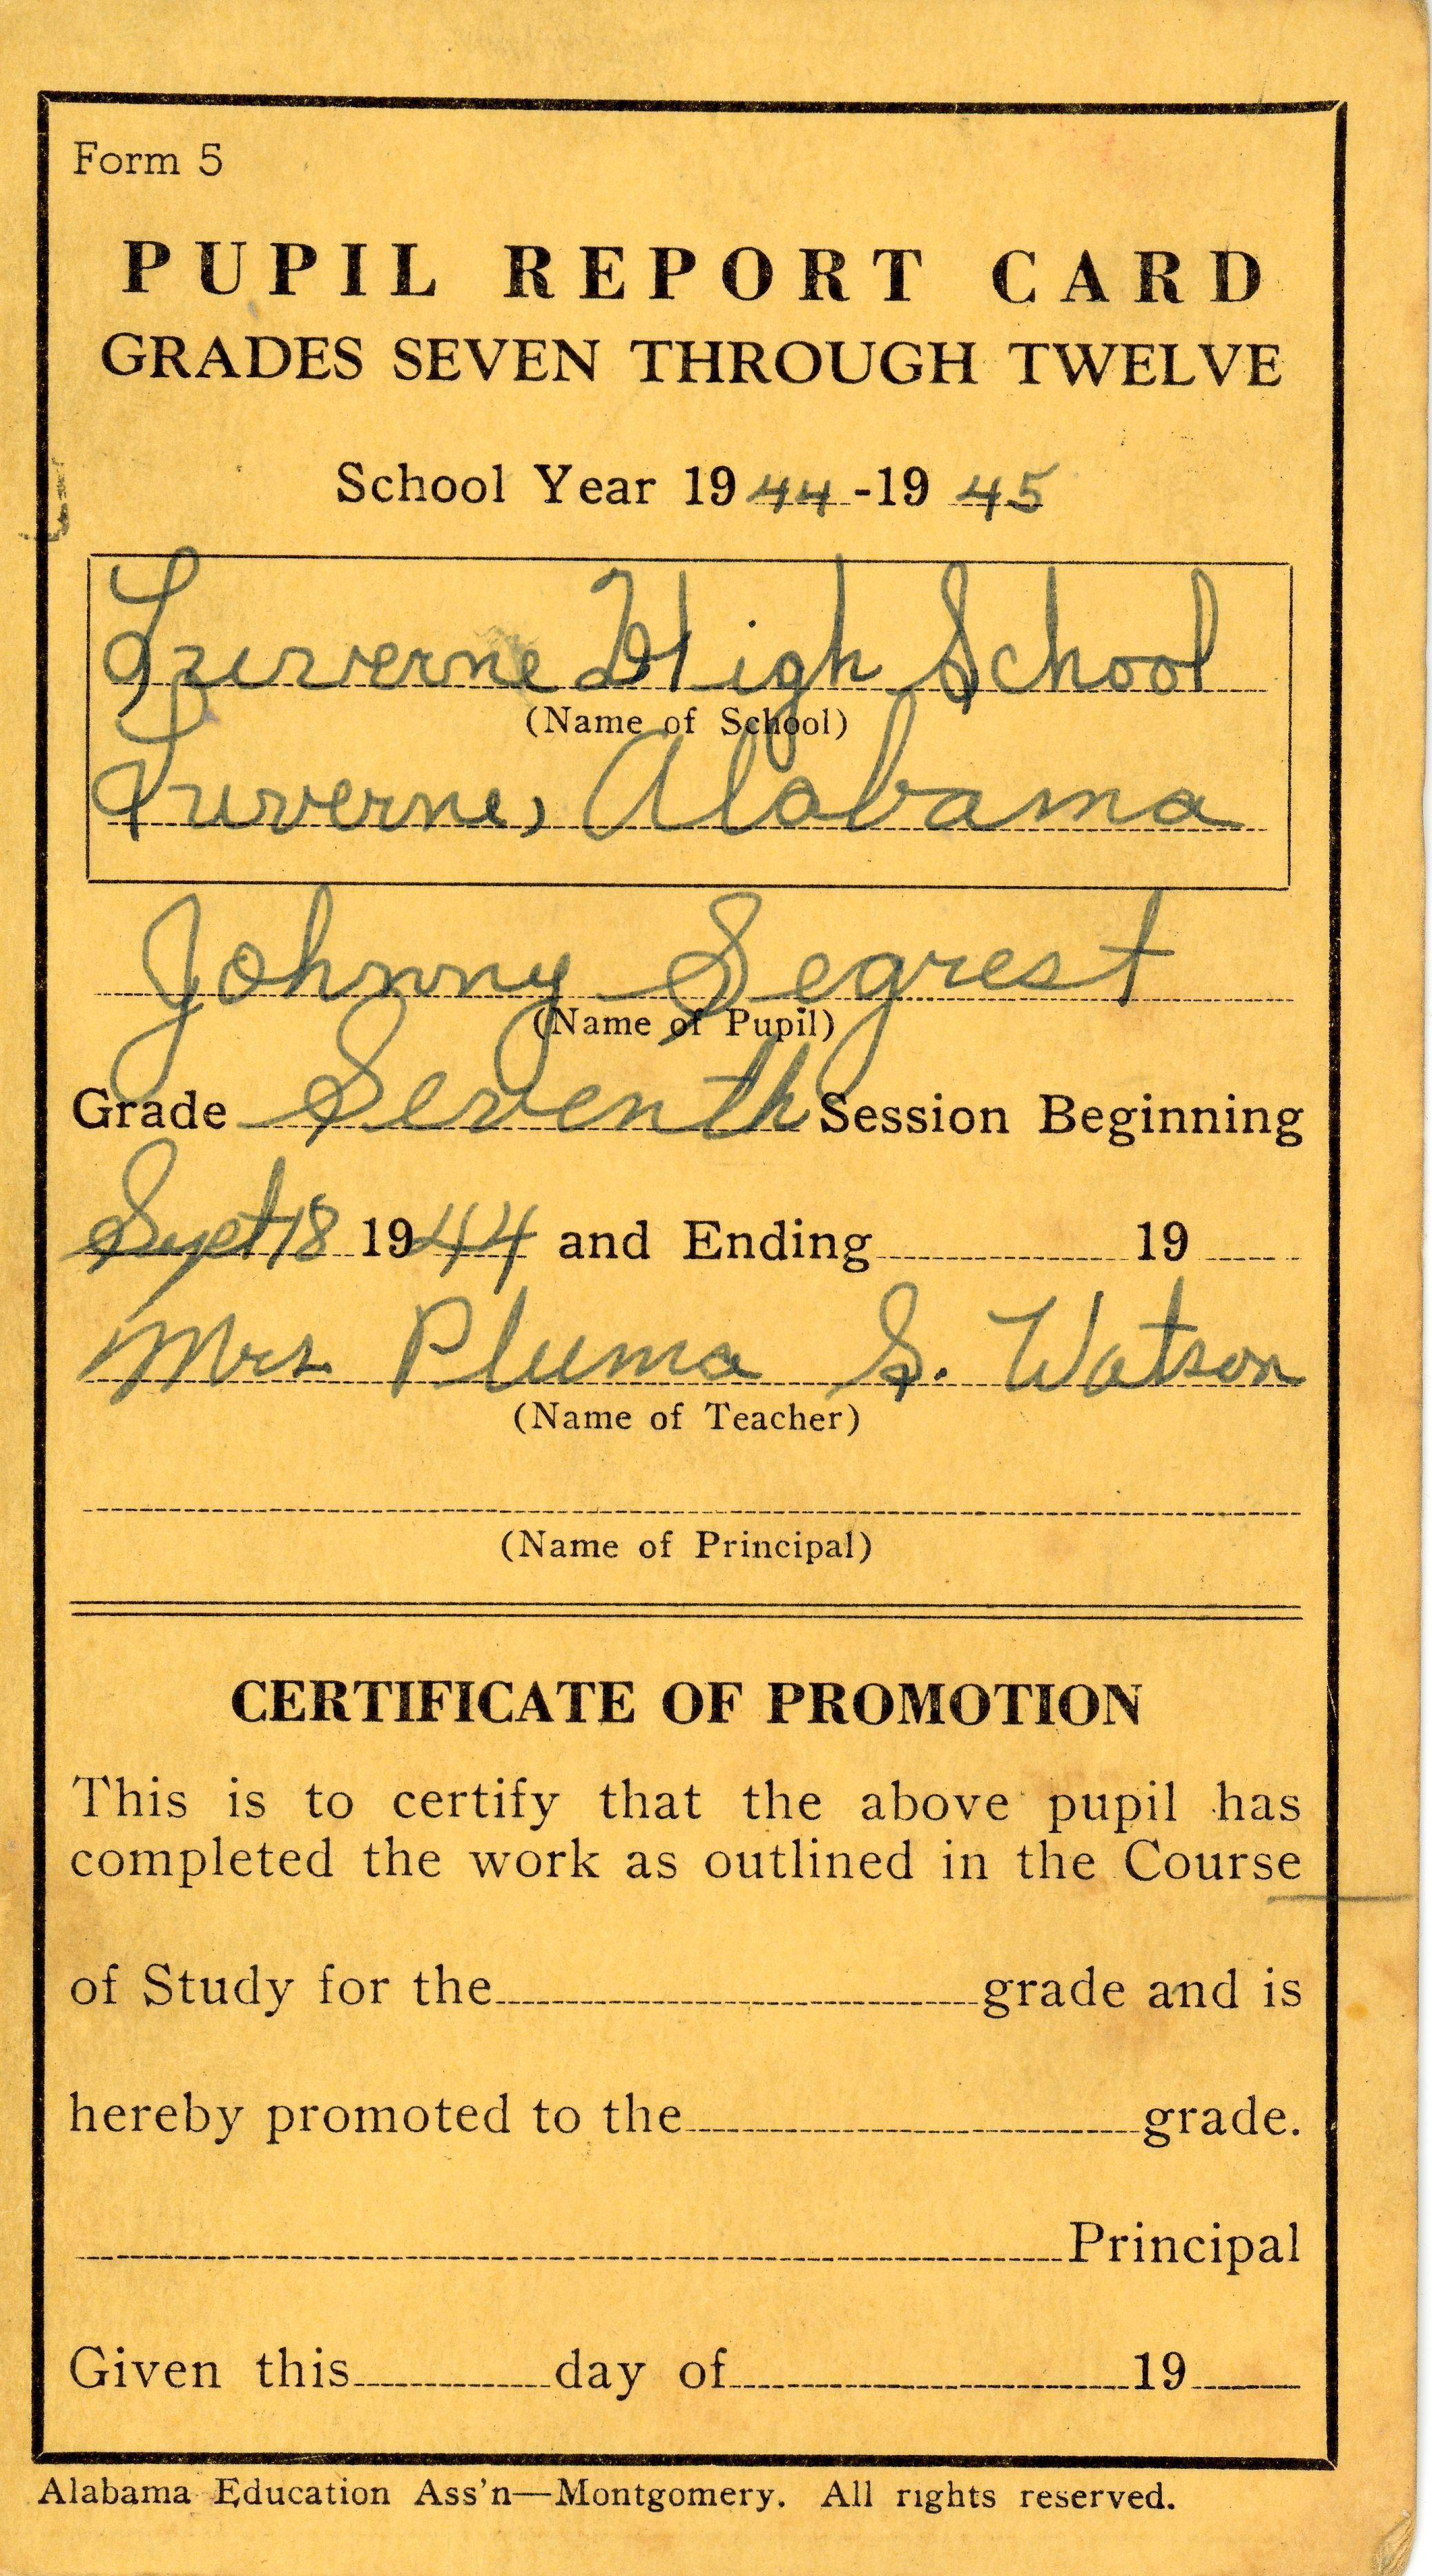 Form 5
PUPIL REPORT CARD
GRADES SEVEN THROUGH TWELVE
School Year 1944-1945
Luverne High School
(Name of School)
Luverne, Alabama
Johnny Segrest
(Name of Pupil)
Grade Seventh Session Beginning
Sept 18 1944 and Ending 19
Mrs. Pluma S. Watson
(Name of Teacher)
(Name of Principal)
CERTIFICATE OF PROMOTION
This is to certify that the above pupil has
completed the work as outlined in the Course
of Study for the grade and is
hereby promoted to the grade.
Principal
Given this day of 19
Alabama Education Ass'n—Montgomery. All rights reserved.